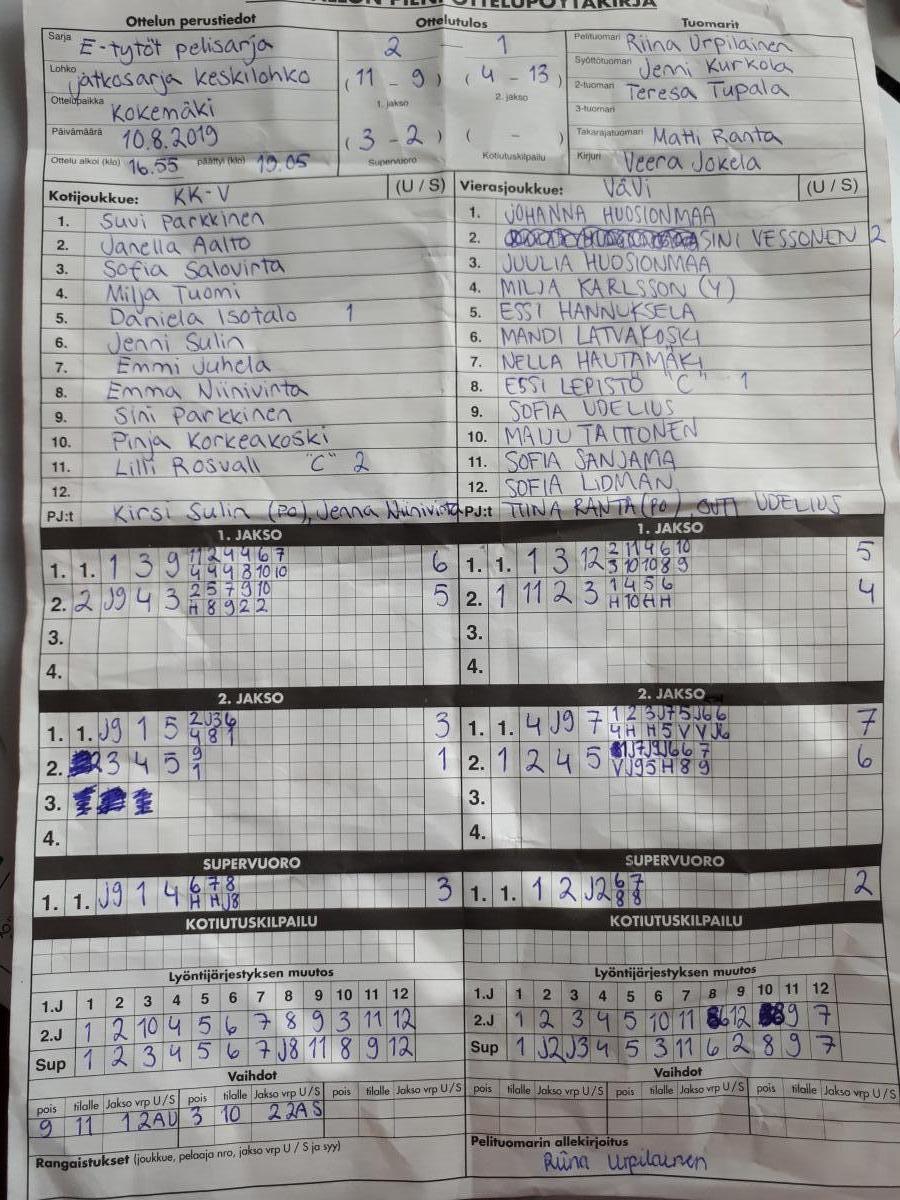 PIENI OTTELUPÖYTÄKIRJA
Ottelun perustiedot Ottelutulos Tuomarit
Sarja E-tytöt pelisarja 2 — 1 Pelituomari Riina Urpilainen
Lohko jatkosarja keskilohko (11 - 9) (4 - 13) Syöttötuomari Jenni Kurkola
1. jakso 2. jakso 2-tuomari Teresa Tupala
Ottelupaikka Kokemäki 3-tuomari
Päivämäärä 10.8.2019 (3 - 2) ( - ) Takarajatuomari Matti Ranta
Ottelu alkoi (klo) 16.55 päättyi (klo) 19.05 Supervuoro Kotiutuskilpailu Kirjuri Veera Jokela
Kotijoukkue: KK-V (U / S) Vierasjoukkue: VäVi (U / S)
1. Suvi Parkkinen 1. JOHANNA HUOSIONMAA
2. Janella Aalto 2. SINI VESSONEN 2
3. Sofia Salovirta 3. JUULIA HUOSIONMAA
4. Milja Tuomi 4. MILJA KARLSSON (Y)
5. Daniela Isotalo 1 5. ESSI HANNUKSELA
6. Jenni Sulin 6. MANDI LATVAKOSKI
7. Emmi Juhela 7. NELLA HAUTAMÄKI
8. Emma Niinivirta 8. ESSI LEPISTÖ "C" 1
9. Sini Parkkinen 9. SOFIA UDELIUS
10. Pinja Korkeakoski 10. MAIJU TAITTONEN
11. Lilli Rosvall "C" 2 11. SOFIA SANJAMA
12. 12. SOFIA LIDMAN
PJ:t Kirsi Sulin (PO), Jenna Niinivirta PJ:t TIINA RANTA (PO), OUTI UDELIUS
1. JAKSO 1. JAKSO
1. 1. 1 3 9 11 2 4 4 6 7 6 1. 1. 1 3 12 2 11 4 6 10 5
4 4 4 8 10 10 3 10 10 8 9
2. 2 J9 4 3 2 5 7 9 10 5 2. 1 11 2 3 1 4 5 6 4
H 8 9 2 2 H 10 H H
3. 3.
4. 4.
2. JAKSO 2. JAKSO
1. 1. J9 1 5 2 J3 6 3 1. 1. 4 J9 7 1 2 3 J7 5 J6 6 7
4 8 1 4 H H 5 V V J6
2. 2 3 4 5 9 1 2. 1 2 4 5 1 J7 J9 J6 6 7 6
1 V J9 5 H 8 9
3. 3.
4. 4.
SUPERVUORO SUPERVUORO
1. 1. J9 1 4 6 7 8 3 1. 1. 1 2 J2 6 7 2
H H J8 8 8
KOTIUTUSKILPAILU KOTIUTUSKILPAILU
Lyöntijärjestyksen muutos Lyöntijärjestyksen muutos
1.J 1 2 3 4 5 6 7 8 9 10 11 12 1.J 1 2 3 4 5 6 7 8 9 10 11 12
2.J 1 2 10 4 5 6 7 8 9 3 11 12 2.J 1 2 3 4 5 10 11 6 12 8 9 7
Sup 1 2 3 4 5 6 7 J8 11 8 9 12 Sup 1 J2 J3 4 5 3 11 6 2 8 9 7
Vaihdot Vaihdot
pois tilalle Jakso vrp U / S pois tilalle Jakso vrp U / S pois tilalle Jakso vrp U / S pois tilalle Jakso vrp U / S
9 11 1 2A U 3 10 2 2A S
Rangaistukset (joukkue, pelaaja nro, jakso vrp U / S ja syy) Pelituomarin allekirjoitus
Riina Urpilainen